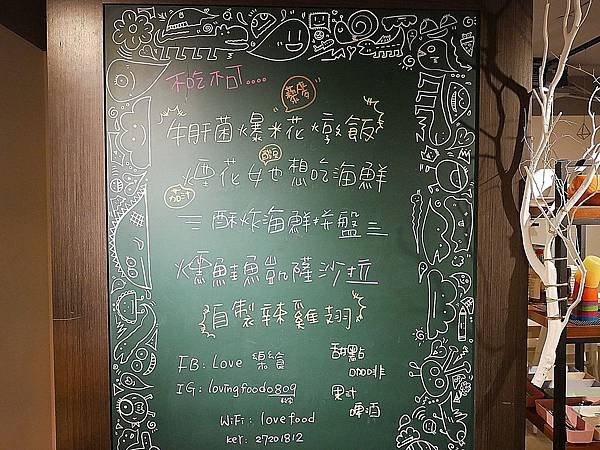 不吃不可....
牛肝菌爆米花燉飯
煙花女也想吃海鮮
加汁
酥炸海鮮拼盤
燻鮭魚凱薩沙拉
自製辣雞翅
FB: Love 樂食
甜點
咖啡
IG: lovingfood0809
果汁
啤酒
WiFi: lovefood
key: 27201812